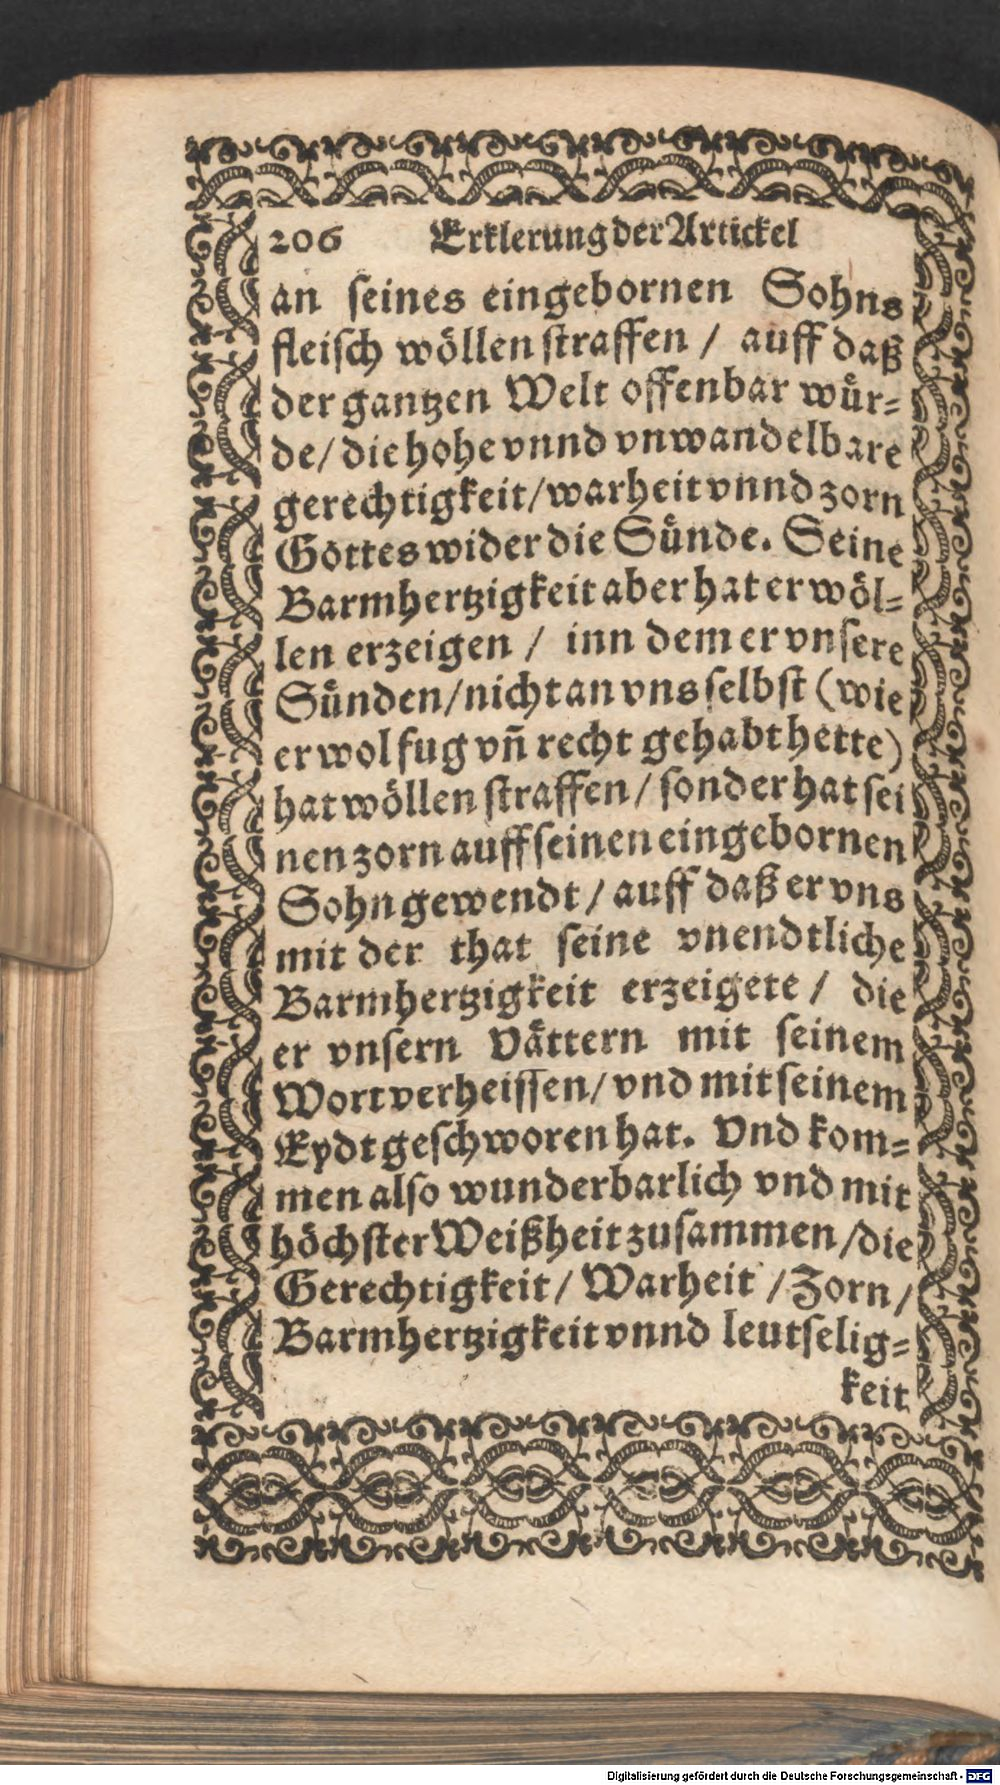 206 Erklerung der Artickel
an seines eingebornen Sohns
fleisch wöllen straffen / auff daß
der gantzen Welt offenbar wuͤr⸗
de/ die hohe vnnd vnwandelbare
gerechtigkeit/warheit vnnd zorn
Gottes wider die Suͤnde. Seine
Barmhertzigkeit aber hat er wöl⸗
len erzeigen / inn dem er vnsere
Suͤnden/nicht an vns selbst (wie
er wol fug vñ recht gehabt hette)
hat wöllen straffen / sonder hat sei
nen zorn auff seinen eingebornen
Sohn gewendt / auff daß er vns
mit der that seine vnendtliche
Barmhertzigkeit erzeigete / die
er vnsern Vättern mit seinem
Wort verheissen/ vnd mit seinem
Eydt geschworen hat. Vnd kom⸗
men also wunderbarlich vnd mit
höchster Weißheit zusammen /die
Gerechtigkeit/ Warheit / Zorn/
Barmhertzigkeit vnnd leutselig⸗
keit
Digitalisierung gefördert durch die Deutsche Forschungsgemeinschaft - DFG